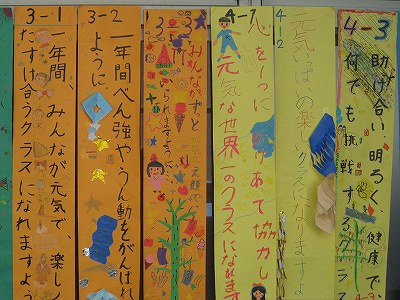 3-1
一年間、みんなが元気で楽し
たすけ合うクラスになれますよう
3-2
一年間べん強やうん動をがんばれ
ように
3-3
みんながずっと
4-1
心を一つに
元気な世界一のクラスになれます
あて協力し
4-2
元気いっぱいの楽しいクラスになりますよ
4-3
助け合い、明るく、健康で、
何でも挑戦するクラス